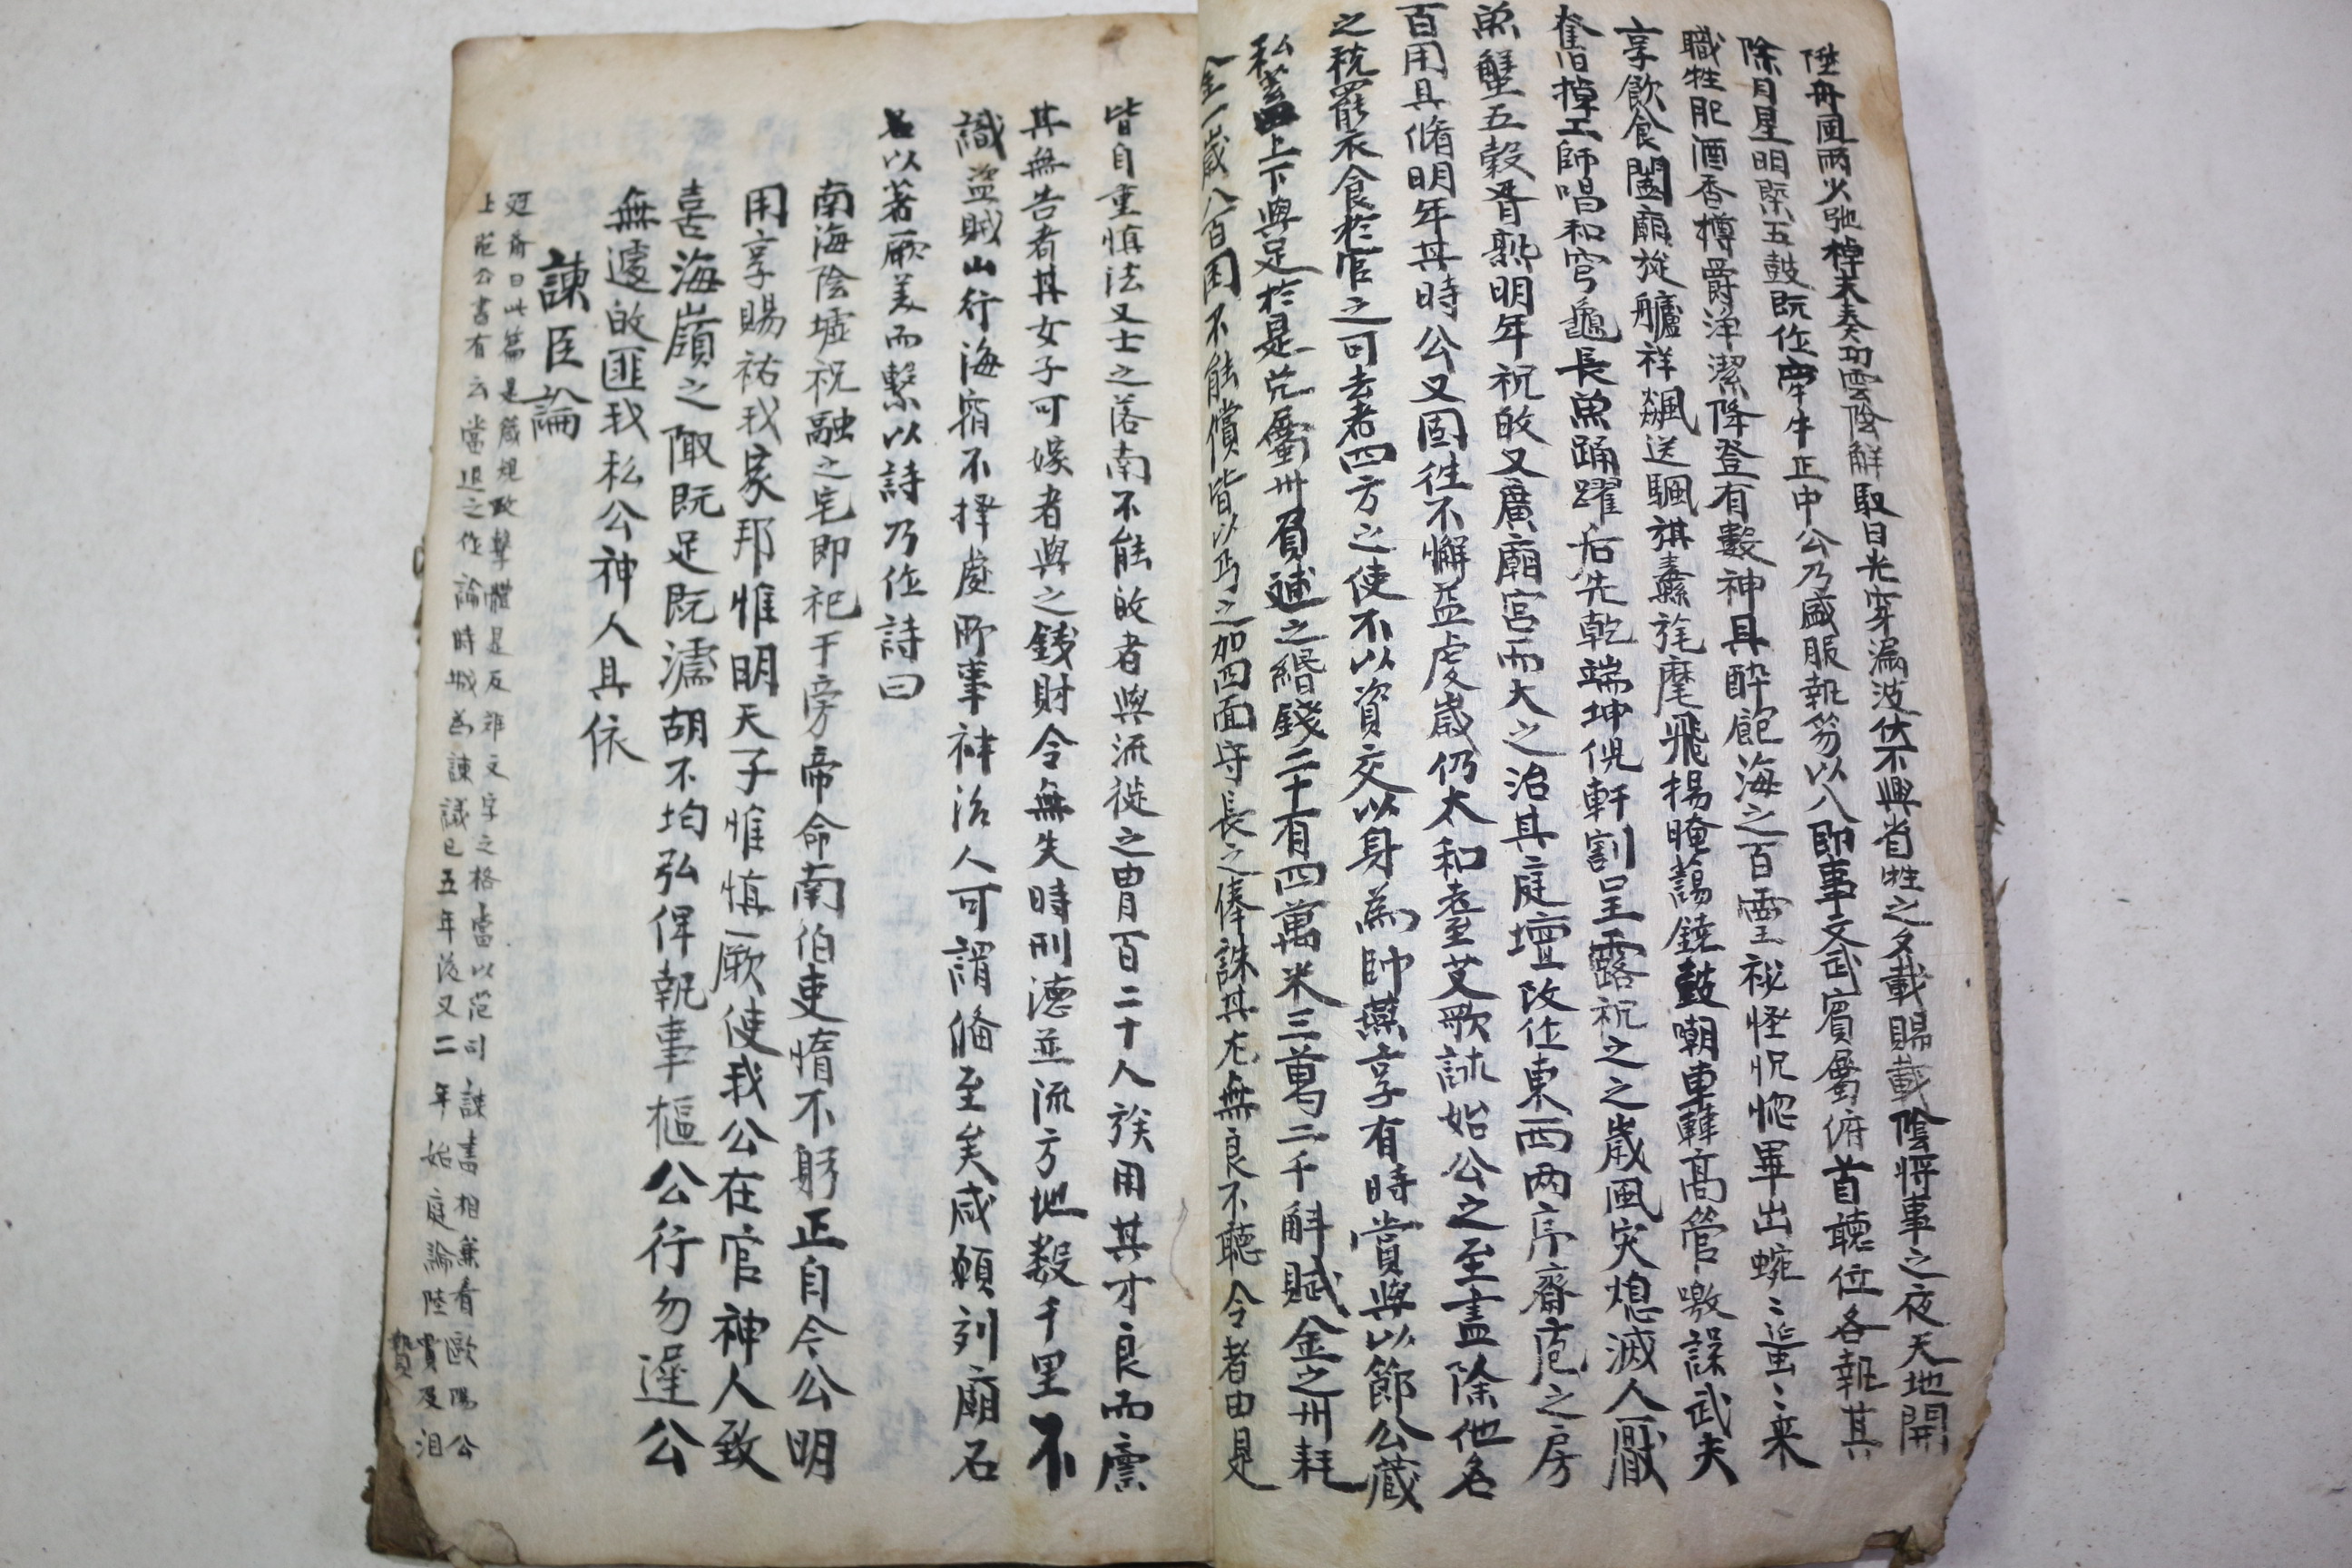 陞舟風雨少弛棹夫奏功雲陰解駁日光穿漏波伏不興省牲之夕載暘載陰將事之夜天地開
除月星明槩五鼓既作牽牛正中公乃盛服執笏以入卽事文武賓屬俯首聽位各執其
職牲肥酒香樽爵淨潔降登有數神具醉飽海之百靈祕怪怳惚畢出蜿〻蜑〻來
享飮食闔廟旋艫祥飊送颿旗纛旄麾飛揚晻藹鐃鼓嘲轟高管噭譟武夫
奮棹工師唱和穹龜長魚踊躍后先乾端坤倪軒豁呈露祀之之歲風灾熄滅人厭
魚蟹五穀胥熟明年祀故又廣廟宮而大之治其庭壇改作東西兩序齋庖之房
百用具脩明年其時公又固徃不懈益虔歲仍大和耋艾歌詠始公之至盡除他名
之稅罷衣食於官之可去者四方之使不以資交以身爲帥燕享有時賞與以節公藏
私蓄上下與足於是免屬州負逋之緡錢二十有四萬米三萬二千斛賦金之州耗
金一歲八百困不能償皆以丐之加四面守長之俸誅其尤無良不聽令者由是
皆自重愼法人士之落南不能故者與流徙之冑百二十人族用其才良而廩
其無告者其女子可嫁者與之錢財令無失時刑德並流方地數千里不
識盜賊山行海宿不擇處所事神治人可謂備至矣咸願列廟石
名以著厥美而繫以詩乃作詩曰
南海陰墟祝融之宅卽祀于旁帝命南伯吏惰不躬正自今公明
用享賜祐我家邦惟明天子惟愼厥使我公在官神人致
喜海嶺之陬既足既濡胡不均弘俾執事樞公行勿遲公
無遽故匪我私公神人具依
諫臣論
迂齋曰此篇是箴規攻擊體是反難文字之格當以范司諫書相兼看歐陽公
上范公書有云當退之作論時城爲諫議已五年後又二年始庭論陸贄及沮